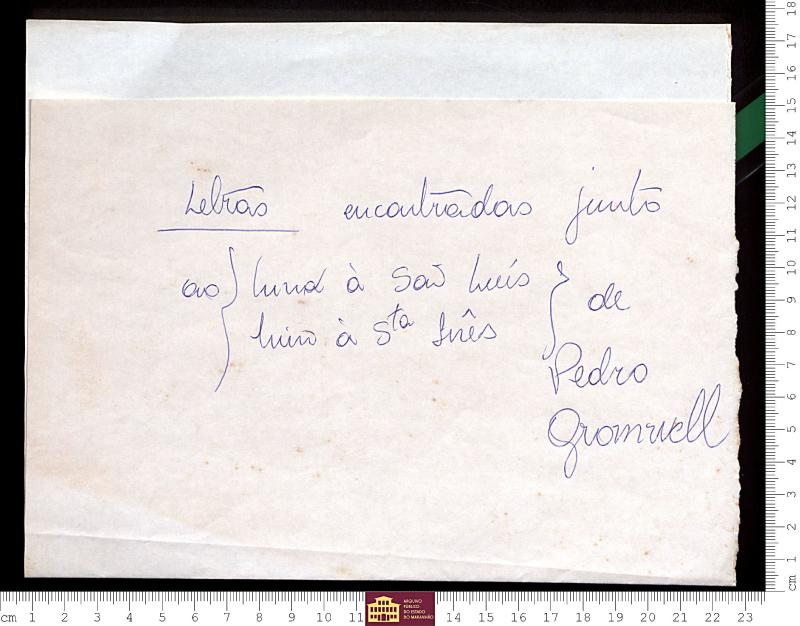 Letras encontradas junto
ao } hino à São Luís } de
hino à Sta Inês
Pedro
Gromwell
cm 1 2 3 4 5 6 7 8 9 10 11 14 15 16 17 18 19 20 21 22 23
cm 1 2 3 4 5 6 7 8 9 10 11 12 13 14 15 16 17 18
ARQUIVO
PÚBLICO
DO ESTADO
DO MARANHÃO